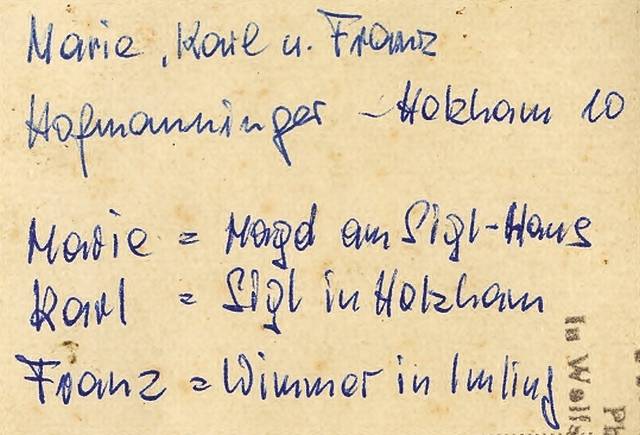 Marie, Karl u. Franz
Hofmanninger - Holzham 10
Marie = Magd am Sigl-Haus
Karl = Sigl in Holzham
Franz = Wimmer in Imling
In
Ph